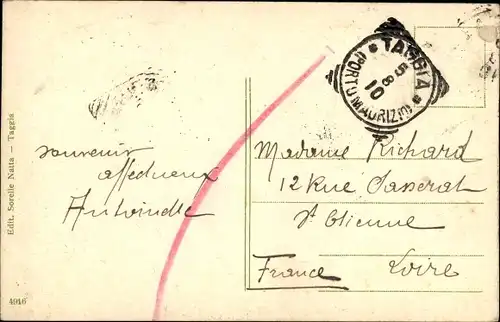 Edit. Sorelle Natta — Taggia
4916
TAGGIA
5 8 10
(PORTO MAURIZIO)
souvenir
affectueux
Antoinette
Madame Richard
12 Rue Passerat
St Etienne
France Loire